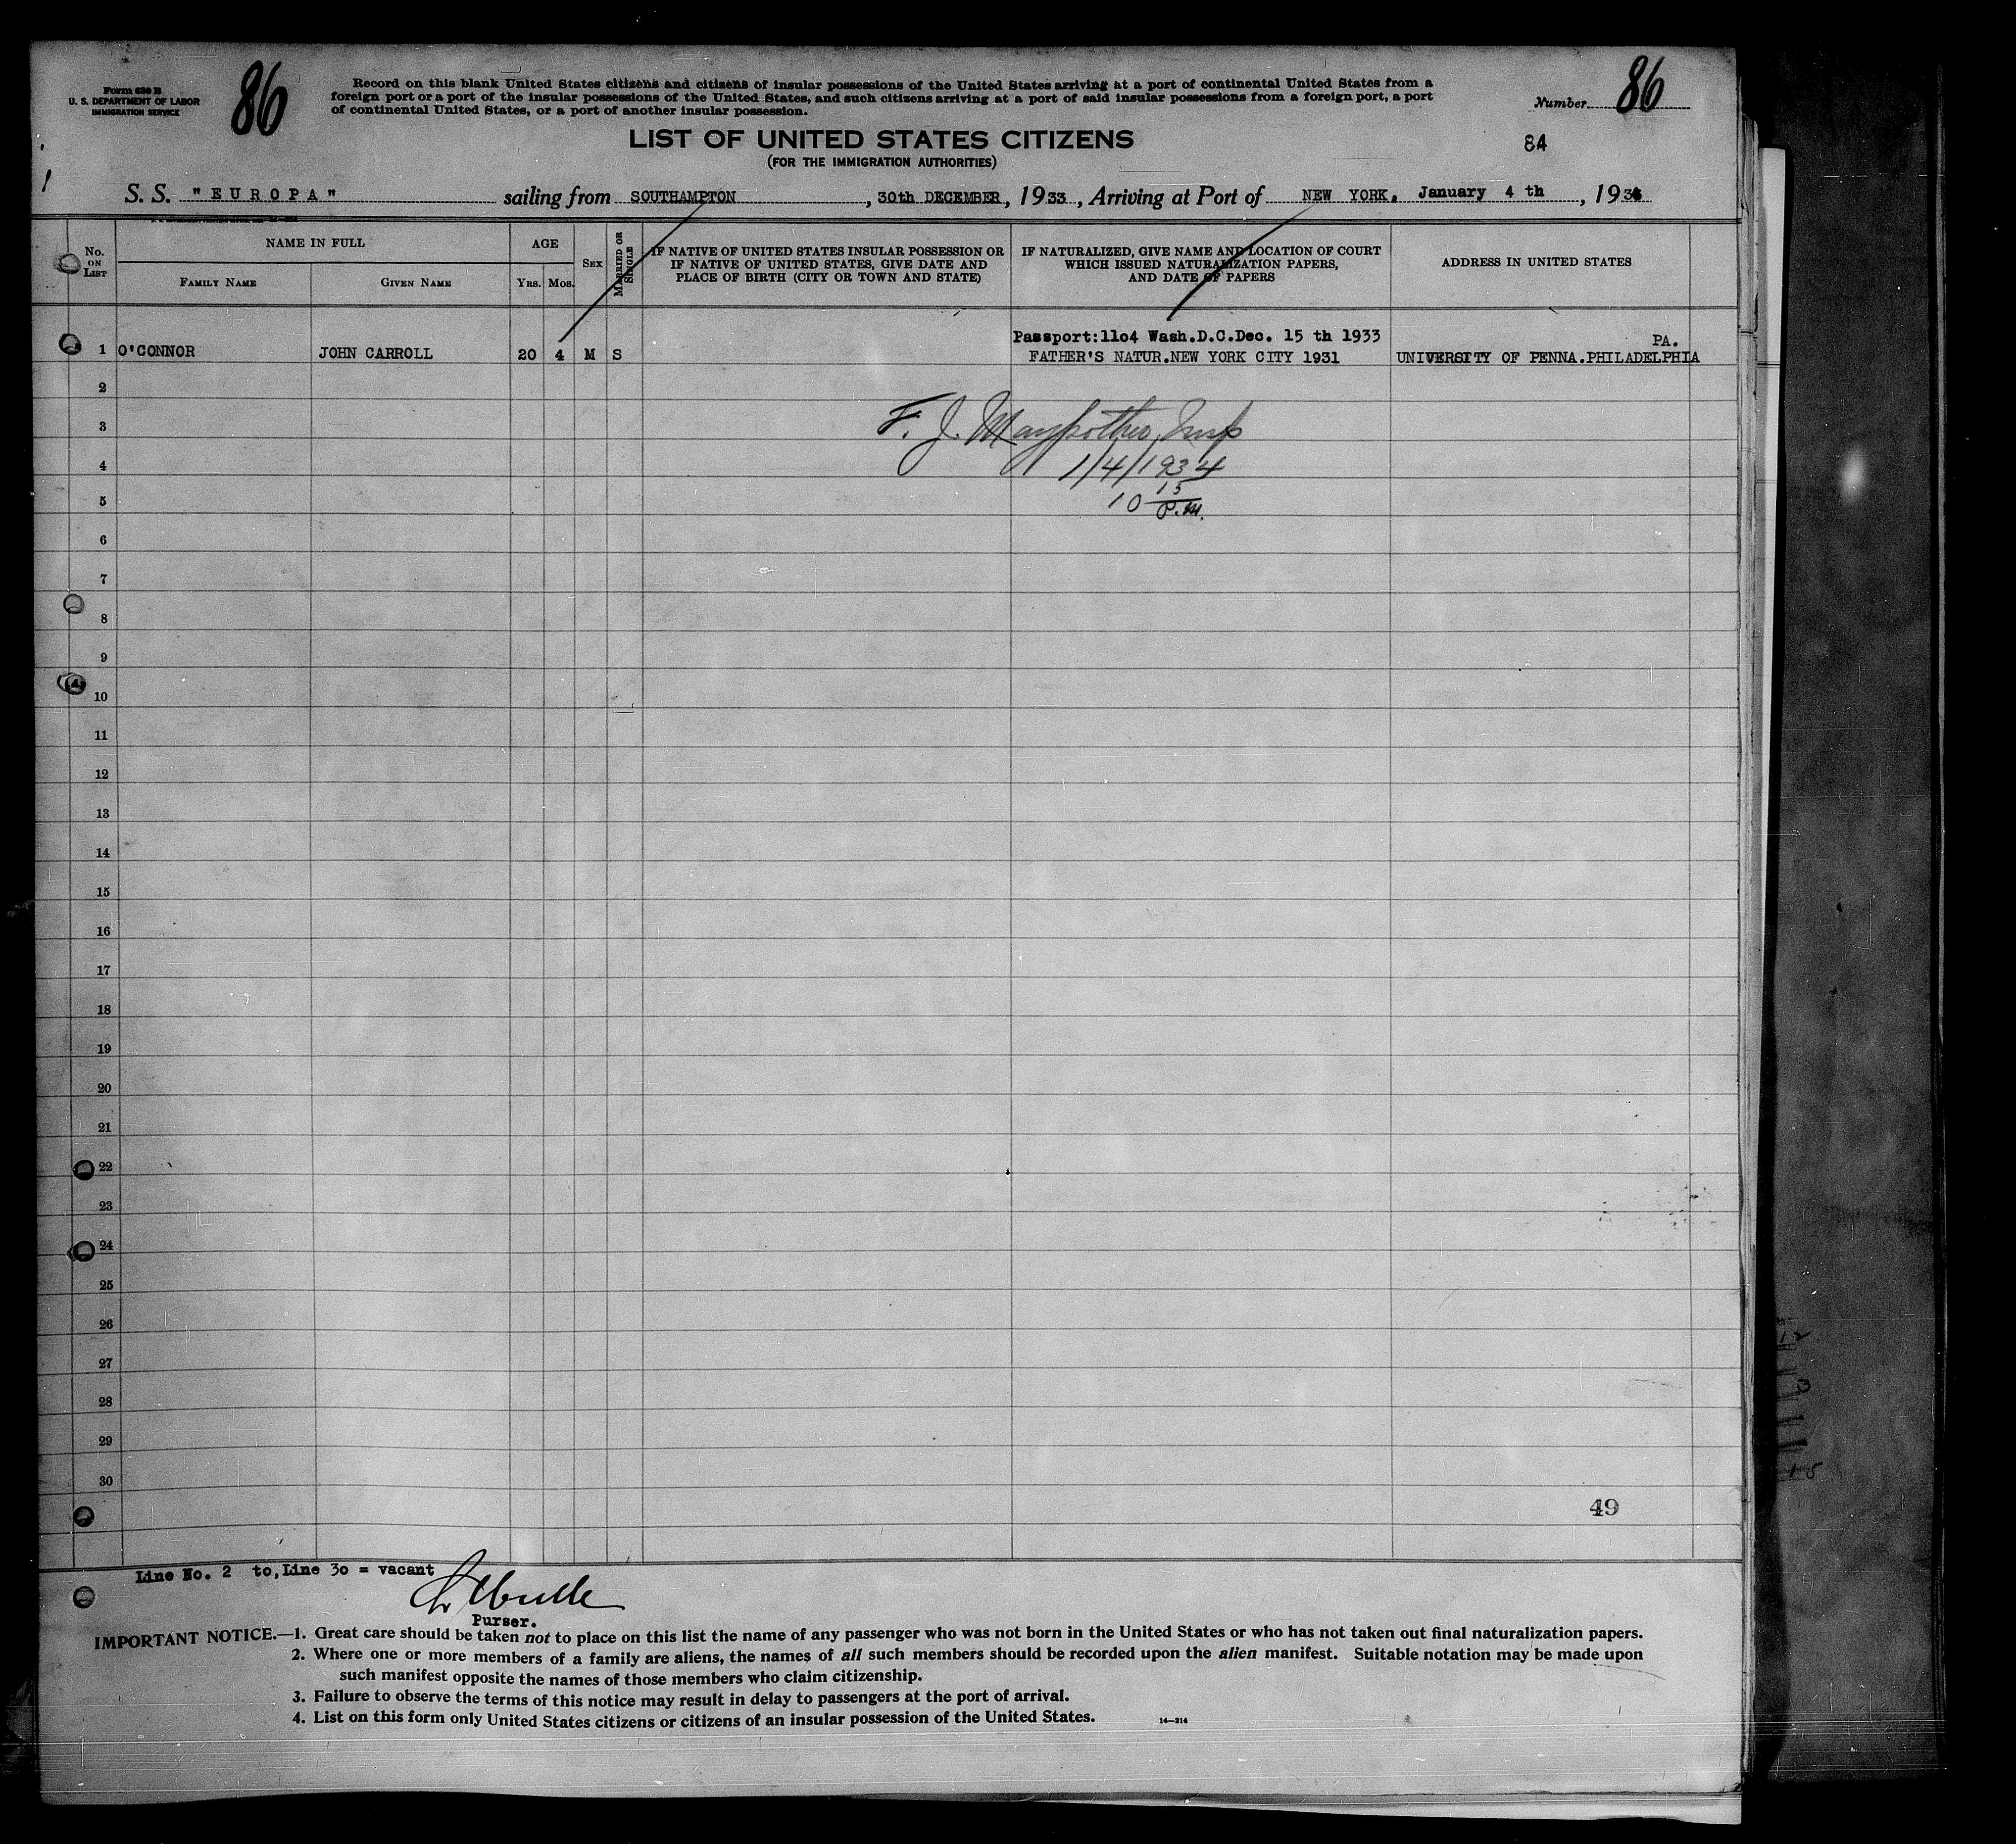 Form 630 B
U. S. DEPARTMENT OF LABOR
IMMIGRATION SERVICE
86
Record on this blank United States citizens and citizens of insular possessions of the United States arriving at a port of continental United States from a
foreign port or a port of the insular possessions of the United States, and such citizens arriving at a port of said insular possessions from a foreign port, a port
of continental United States, or a port of another insular possession.
Number 86
LIST OF UNITED STATES CITIZENS
(FOR THE IMMIGRATION AUTHORITIES)
84
S. S. "EUROPA" sailing from SOUTHAMPTON, 30th DECEMBER, 1933, Arriving at Port of NEW YORK, January 4 th, 1934
No. ON LIST
NAME IN FULL
FAMILY NAME
GIVEN NAME
AGE
YRS. MOS.
SEX
MARRIED OR SINGLE
IF NATIVE OF UNITED STATES INSULAR POSSESSION OR
IF NATIVE OF UNITED STATES, GIVE DATE AND
PLACE OF BIRTH (CITY OR TOWN AND STATE)
IF NATURALIZED, GIVE NAME AND LOCATION OF COURT
WHICH ISSUED NATURALIZATION PAPERS,
AND DATE OF PAPERS
ADDRESS IN UNITED STATES
Passport:11o4 Wash.D.C.Dec. 15 th 1933
PA.
1 O'CONNOR JOHN CARROLL 20 4 M S FATHER'S NATUR.NEW YORK CITY 1931 UNIVERSITY OF PENNA.PHILADELPHIA
2
3 F. J. Maypother, Insp
4 1/4/1934
5 10 15 P.M.
6
7
8
9
10
11
12
13
14
15
16
17
18
19
20
21
22
23
24
25
26
27
28
29
30
49
Line No. 2 to,Line 3o = vacant
Purser.
IMPORTANT NOTICE.—1. Great care should be taken not to place on this list the name of any passenger who was not born in the United States or who has not taken out final naturalization papers.
2. Where one or more members of a family are aliens, the names of all such members should be recorded upon the alien manifest. Suitable notation may be made upon
such manifest opposite the names of those members who claim citizenship.
3. Failure to observe the terms of this notice may result in delay to passengers at the port of arrival.
4. List on this form only United States citizens or citizens of an insular possession of the United States.
14—214